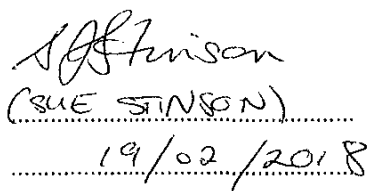 S J Stinson
(SUE STINSON)
19/02/2018